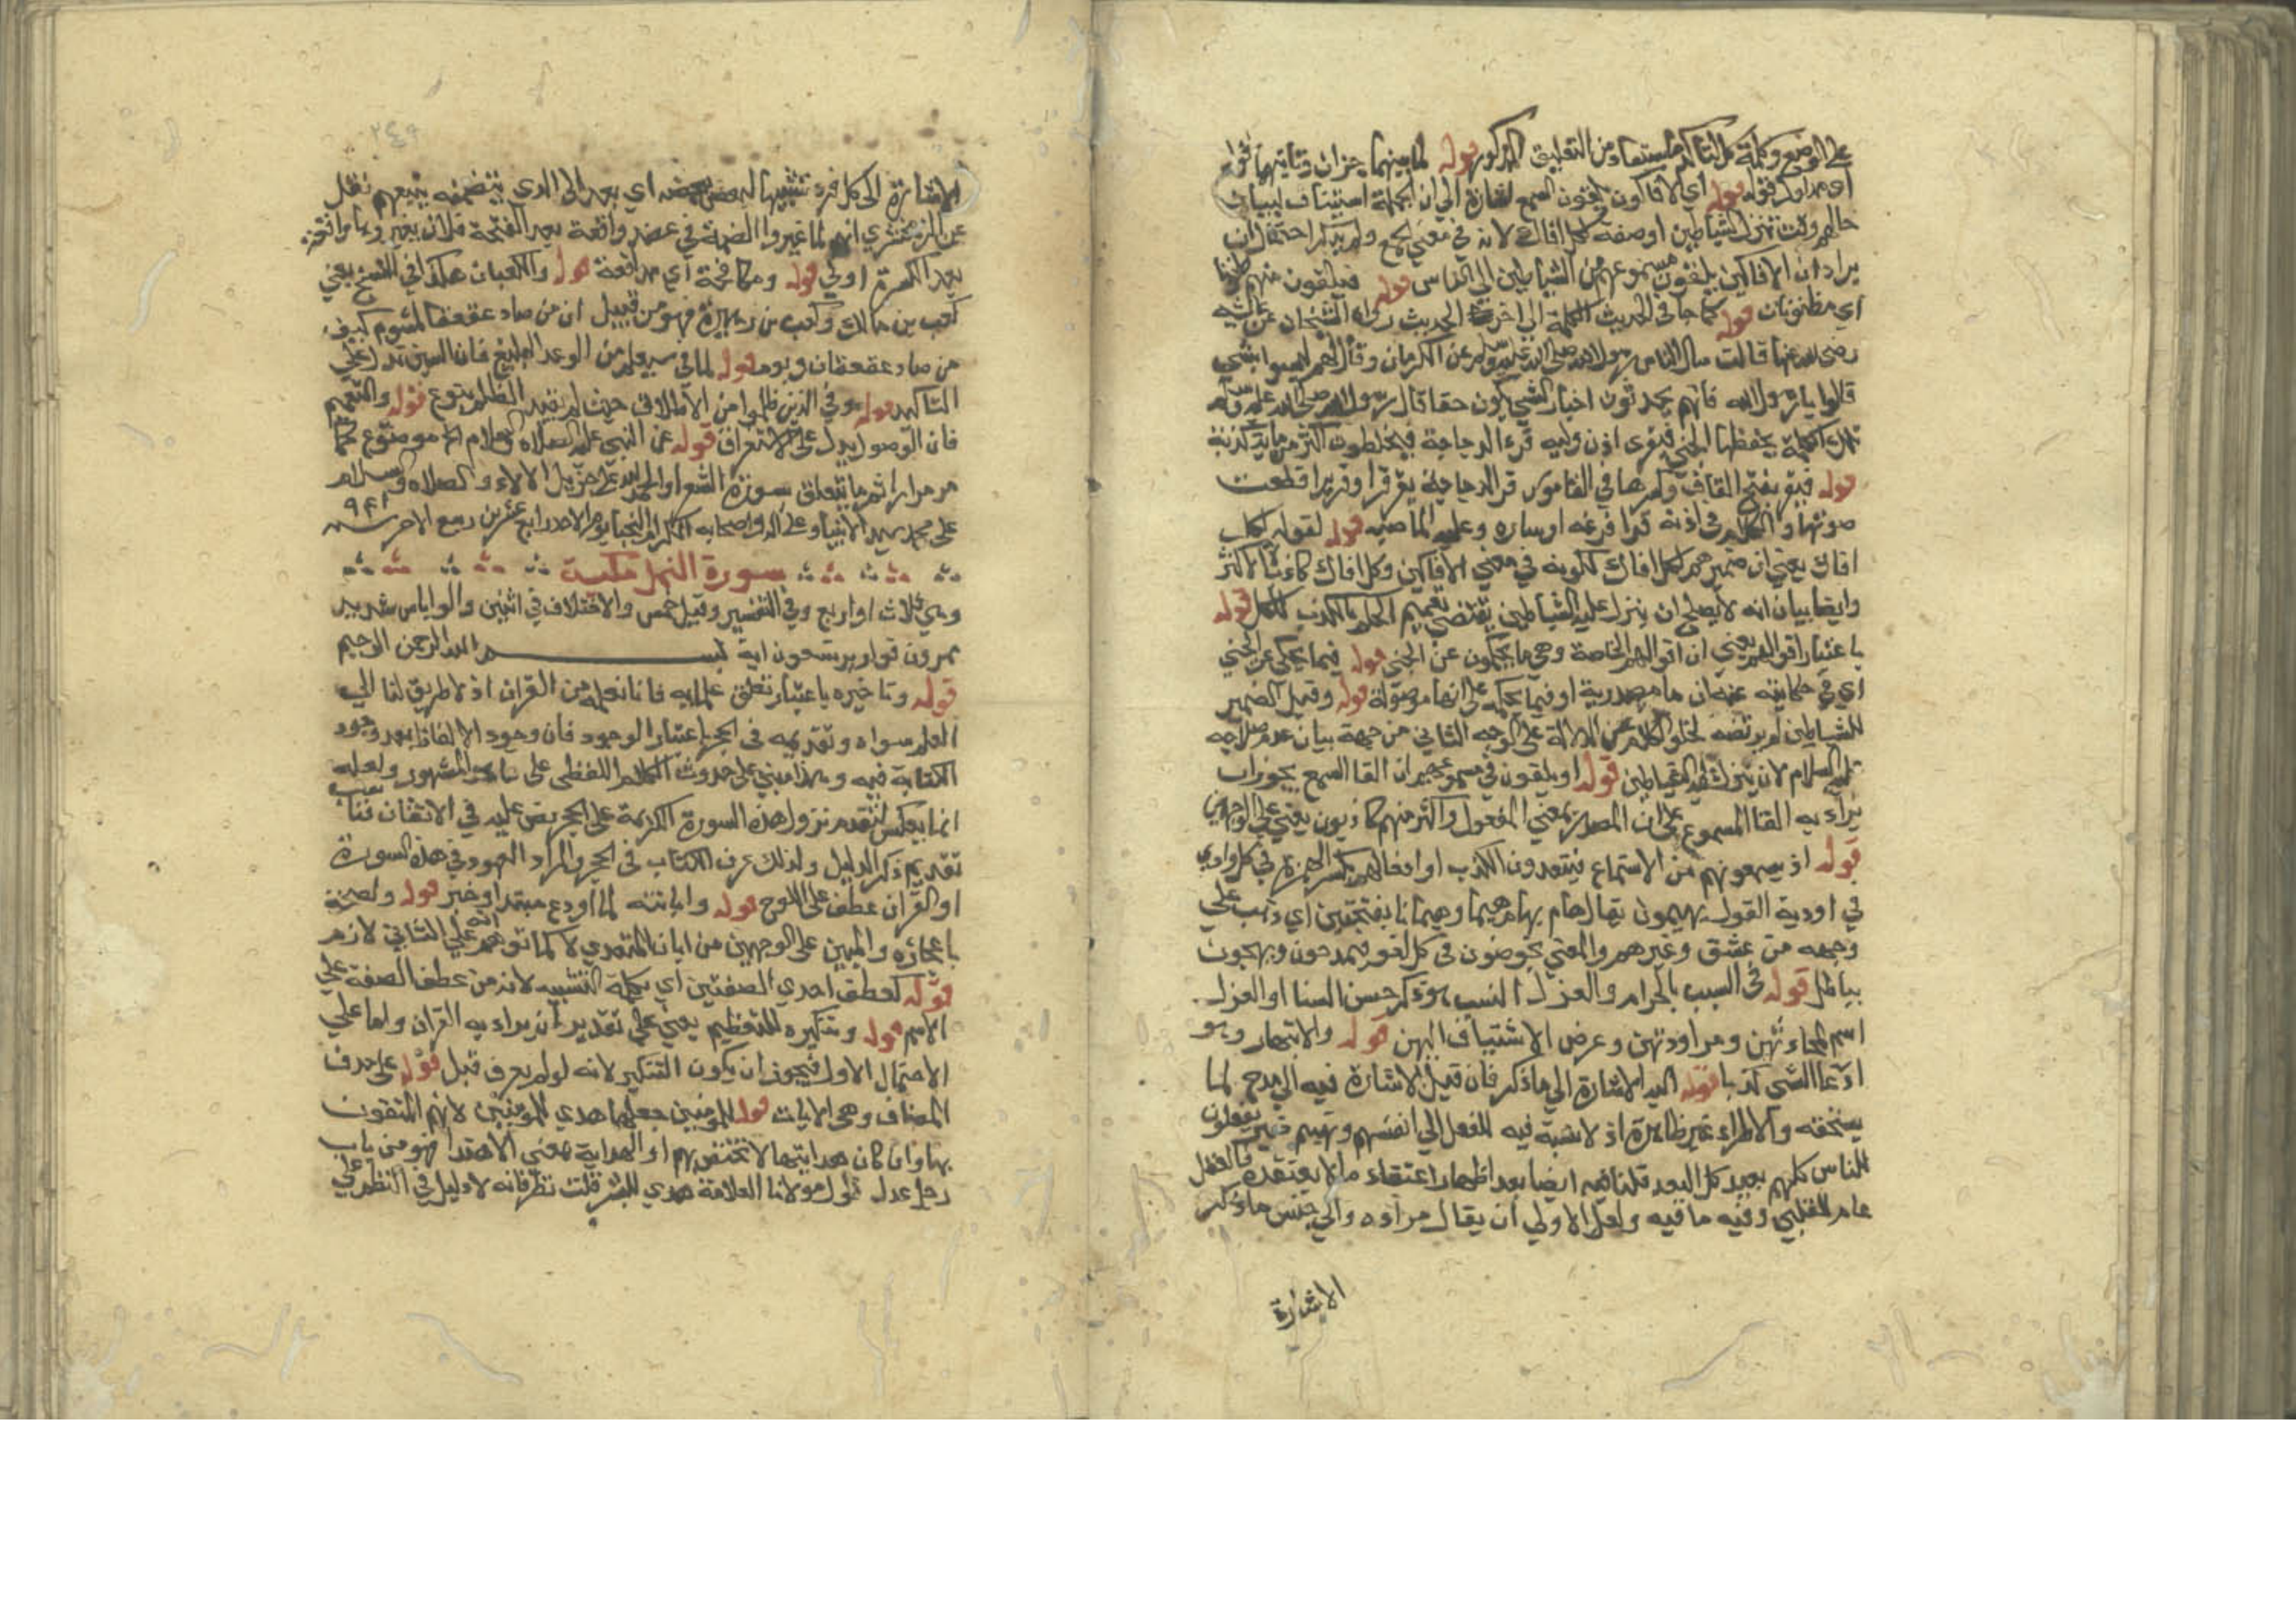 على الوضع وكملة كل التاكد مستفاد من التعليق المذكور قوله لما بينهما
اي هذا ولا قوله اي الافاكون يلقون السمع اشارة الى ان الجملة استيناف لبيان
حالهم وقت تنزل الشياطين او صفة لكل افاك لانه في معنى الجمع ولم يذكر احتمال ان
يراد ان الافاكين يلقون مسموعهم من الشياطين الى الناس قوله فيلقون منهم ظنونا
اي مظنونات قوله كما جا في الحديث الكلمة الى اخره الحديث رواه الشيخان عن عائشة
رضي الله عنها قالت سال الناس رسول الله صلى الله عليه وسلم عن الكهان وقال لهم ليسوا بشي
قالوا يا رسول الله فانهم يحدثون احيانا بالشي يكون حقا قال رسول الله صلى الله عليه وسلم
تلك الكلمة يخطفها الجني فيقرى اذن وليه قرء الدجاجة فيخلطون اكثر من ماية كذبة
قوله فيقر بفتح القاف وكسرها في القاموس قر الدجاجة يقر قرا وقريرا قطعت
صوتها والكلام في اذنه قرا فرغه او ساره وعليه الماضيه قوله لقوله لكل
افاك يعني ان ضمير هم لكل افاك لكونه في معنى الافاكين وكل افاك
وايضا بيان انه لا يصلح ان ينزل عليه الشياطين يقتضي تعميم الحكم بالكذب للكل قوله
باعتبار اقوالهم يعني ان اقوالهم الخاصة وهي ما يحكون عن الجني قوله فيما يحكى عن الجني
اي في حكايته عنه ان ما مصدرية او فيما يحكيه على انها موصولة قوله وقيل الضمير
للشياطين لم يرتضه لخلو الكلام عن الدلالة على الوجه الثاني من جهة بيان عدم صلاحيه
عليه السلام لان يتنزل عليه الشياطين قوله او يلقون في مسموعهم ان القا السمع يجوز ان
يراد به القا المسموع على ان المصدر بمعنى المفعول واكثرهم كاذبون يعني على الوجهين
قوله اذ يسمعونهم من الاستماع فيتعمدون الكذب او افعالهم بكسر الهمزة في كل وادي
في اودية القول يهيمون يقال هام يهيم هيما وهيمانا بفتحتين اي ذهب على
وجهه من عشق وغيرهم والمعنى يخوضون في كل لغو فيمدحون ويهجون
بباطل قوله في السبب بالحرام والغزل النسيب هو ذكر حسن النسا او الغزل
اسم لمحادثتهن ومراودتهن وعرض الاشتياق اليهن قوله والابتهار وهو
ادعا الشي كذبا قوله اليه الاشارة الى ما ذكر فان قيل الاشارة فيه الى مدح لما
يستحقه والاطراء غير ظاهرة اذ لا نسبة فيه للفعل الى انفسهم وتعميم ضمير يفعلون
للناس كلهم بعيد كل البعد قلنا فيه ايضا بعد اظهار اعتقاد ما لا يعتقده فالفعل
عام للقلبي وفيه ما فيه ولعل الاولى ان يقال مراده والى جنس ما ذكر
الاشارة
٢٤٩
الاشارة الى كل فرد تشبيها لبعض ببعضه اي بعد الى الذي يتضمنه يتبعهم نقل
عن الزمخشري انهم لما غيروا الضمة في عضد واقعة بعد الفتحة فلان يغيروها واقعة
بعد الكسرة اولى قوله ومكافحة اي مدافعة قوله والكعبان هكذا في النسخ يعني
كعب بن مالك وكعب بن زهير فهو من قبيل ان من صاد عقعقا لمشوم كيف
من صاد عقعقان وبوم قوله لما في سيعلم من الوعد البليغ فان السين تدل على
التاكيد قوله وفي الذين ظلموا من الاطلاق حيث لم يقيد الظلم بنوع قوله والتعميم
فان الوصول يدل على الاستغراق قوله عن النبي عليه الصلاة والسلام الخ موضوع كما
مر مرارا تم ما يتعلق بسورة الشعرا والحمد لله على جزيل الالاء والصلاه والسلام
على محمد سيد الانبيا وعلى اله واصحابه الكرام النجبا يوم الاحد رابع عشرين ربيع الاخر سنه ٩٤١
سورة النمل مكية
وهي ثلاث او اربع وفي التفسير وقيل خمس والاختلاف في اثنين والوا باس شديد
ممرد من قوارير تسعون اية بسم الله الرحمن الرحيم
قوله وتاخيره باعتبار تعلق علمنا به فانا نعلمه من القران اذ لا طريق لنا الى
العلم سواه وتقديمه في الحجر باعتبار الوجود فان وجود الالفاظ بعد وجود
الكتابة فيه وهذا مبني على حدوث الكلام اللفظي على ما هو المشهور ولعله
انما يعكس لتقدم نزول هذه السورة الكريمة على الحجر نص عليه في الاتقان فناسب
تقديم ذكر الدليل ولذلك عرف الكتاب في الحجر والمراد العهود في هذه السورة
او القران عطف على اللوح قوله وابانته لما اودع مبتدا وخبر قوله ولصحته
باعجازه والمبين على الوجهين من ابان المتعدي لا كما توهم انه على الثاني لازم
قوله كعطف احدي الصفتين اي بكلمة التشبيه لانه من عطف الصفة على
الاسم قوله وتنكيره للتعظيم يعني على تقدير ان يراد به القران واما على
الاحتمال الاول فيجوز ان يكون التنكير لانه لو لم يعرف قبل قوله على حذف
المضاف وهي الايات قوله للمومنين جعلها هدي للمومنين لانهم المتقون
بها وان كان هدايتها لا تختص بهم او الهداية بمعنى الاهتدا فهو من باب
رجل عدل قال مولانا العلامة هدي للبشر قلت نظر فانه لا دليل في النظم على